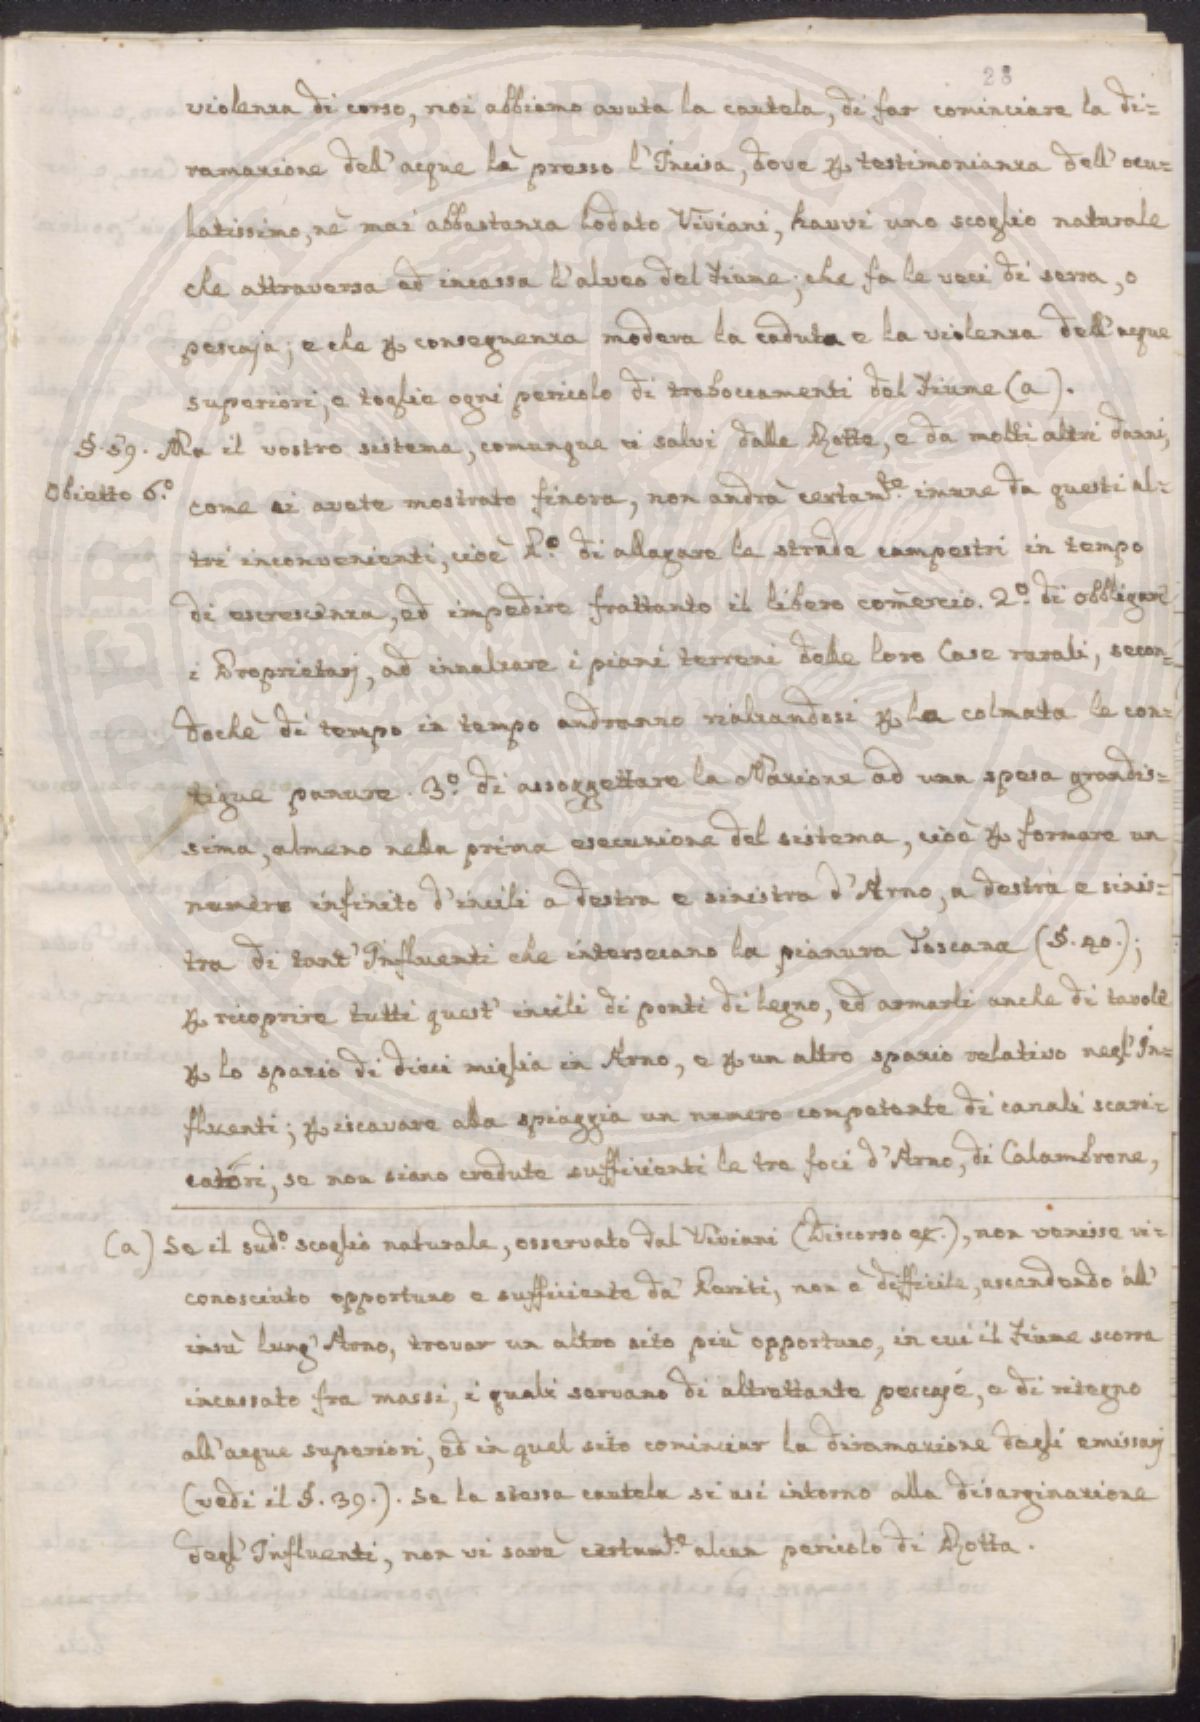 28
violenza di corso, noi abbiamo avuta la cautela, di far cominciare la di=
ramazione dell'acque là presso l'Incisa, dove ꝑ testimonianza dell'ocu=
latissimo, nè mai abbastanza lodato Viviani, havvi uno scoglio naturale
che attraversa ed incassa l'alveo del Fiume; che fa le veci di serra, o
pescaja; e che ꝑ conseguenza modera la caduta e la violenza dell'acque
superiori, e toglie ogni pericolo di traboccamenti del Fiume (a).
§. 59. Ma il vostro sistema, comunque ci salvi dalle Rotte, e da molti altri danni,
Obietto 6.º come ci avete mostrato finora, non andrà certam.te imune da questi al=
tri inconvenienti, cioè P.º di allagare le strade campestri in tempo
di escrescenza, ed impedire frattanto il libero comercio. 2.º di obbligare
i Proprietarj, ad innalzare i piani terreni delle loro Case rurali, secon=
dochè di tempo in tempo andranno rialzandosi ꝑ la colmata le con=
tigue panure. 3.º di assoggettare la Nazione ad una spesa grandis=
sima, almeno nella prima esecuzione del sistema, cioè ꝑ formare un
numero infinito d'incili a destra e sinistra d'Arno, a destra e sinis=
tra di tant'Influenti che intersecano la pianura Toscana (§. 40.);
ꝑ ricoprire tutti quest'incili di ponti di legno, ed armarli anche di tavole
ꝑ lo spazio di dieci miglia in Arno, e ꝑ un altro spazio relativo negl'In=
fluenti; ꝑ iscavare alla spiaggia un numero competente di canali scari=
catori, se non siano credute sufficienti le tre foci d'Arno, di Calambrone,
(a) Se il sud.º scoglio naturale, osservato dal Viviani (Discorso ec.), non venisse ri=
conosciuto opportuno e sufficiente da' Periti, non è difficile, ascendendo all'
insù lung'Arno, trovar un altro sito più opportuno, in cui il Fiume scorra
incassato fra massi, i quali servano di altrettante pescajé, e di ritegno
all'acque superiori, ed in quel sito cominciar la diramazione degli emissarj
(vedi il §. 39.). Se la stessa cautela si usi intorno alla disarginazione
degl'Influenti, non vi sarà certam.te alcun pericolo di Rotta.